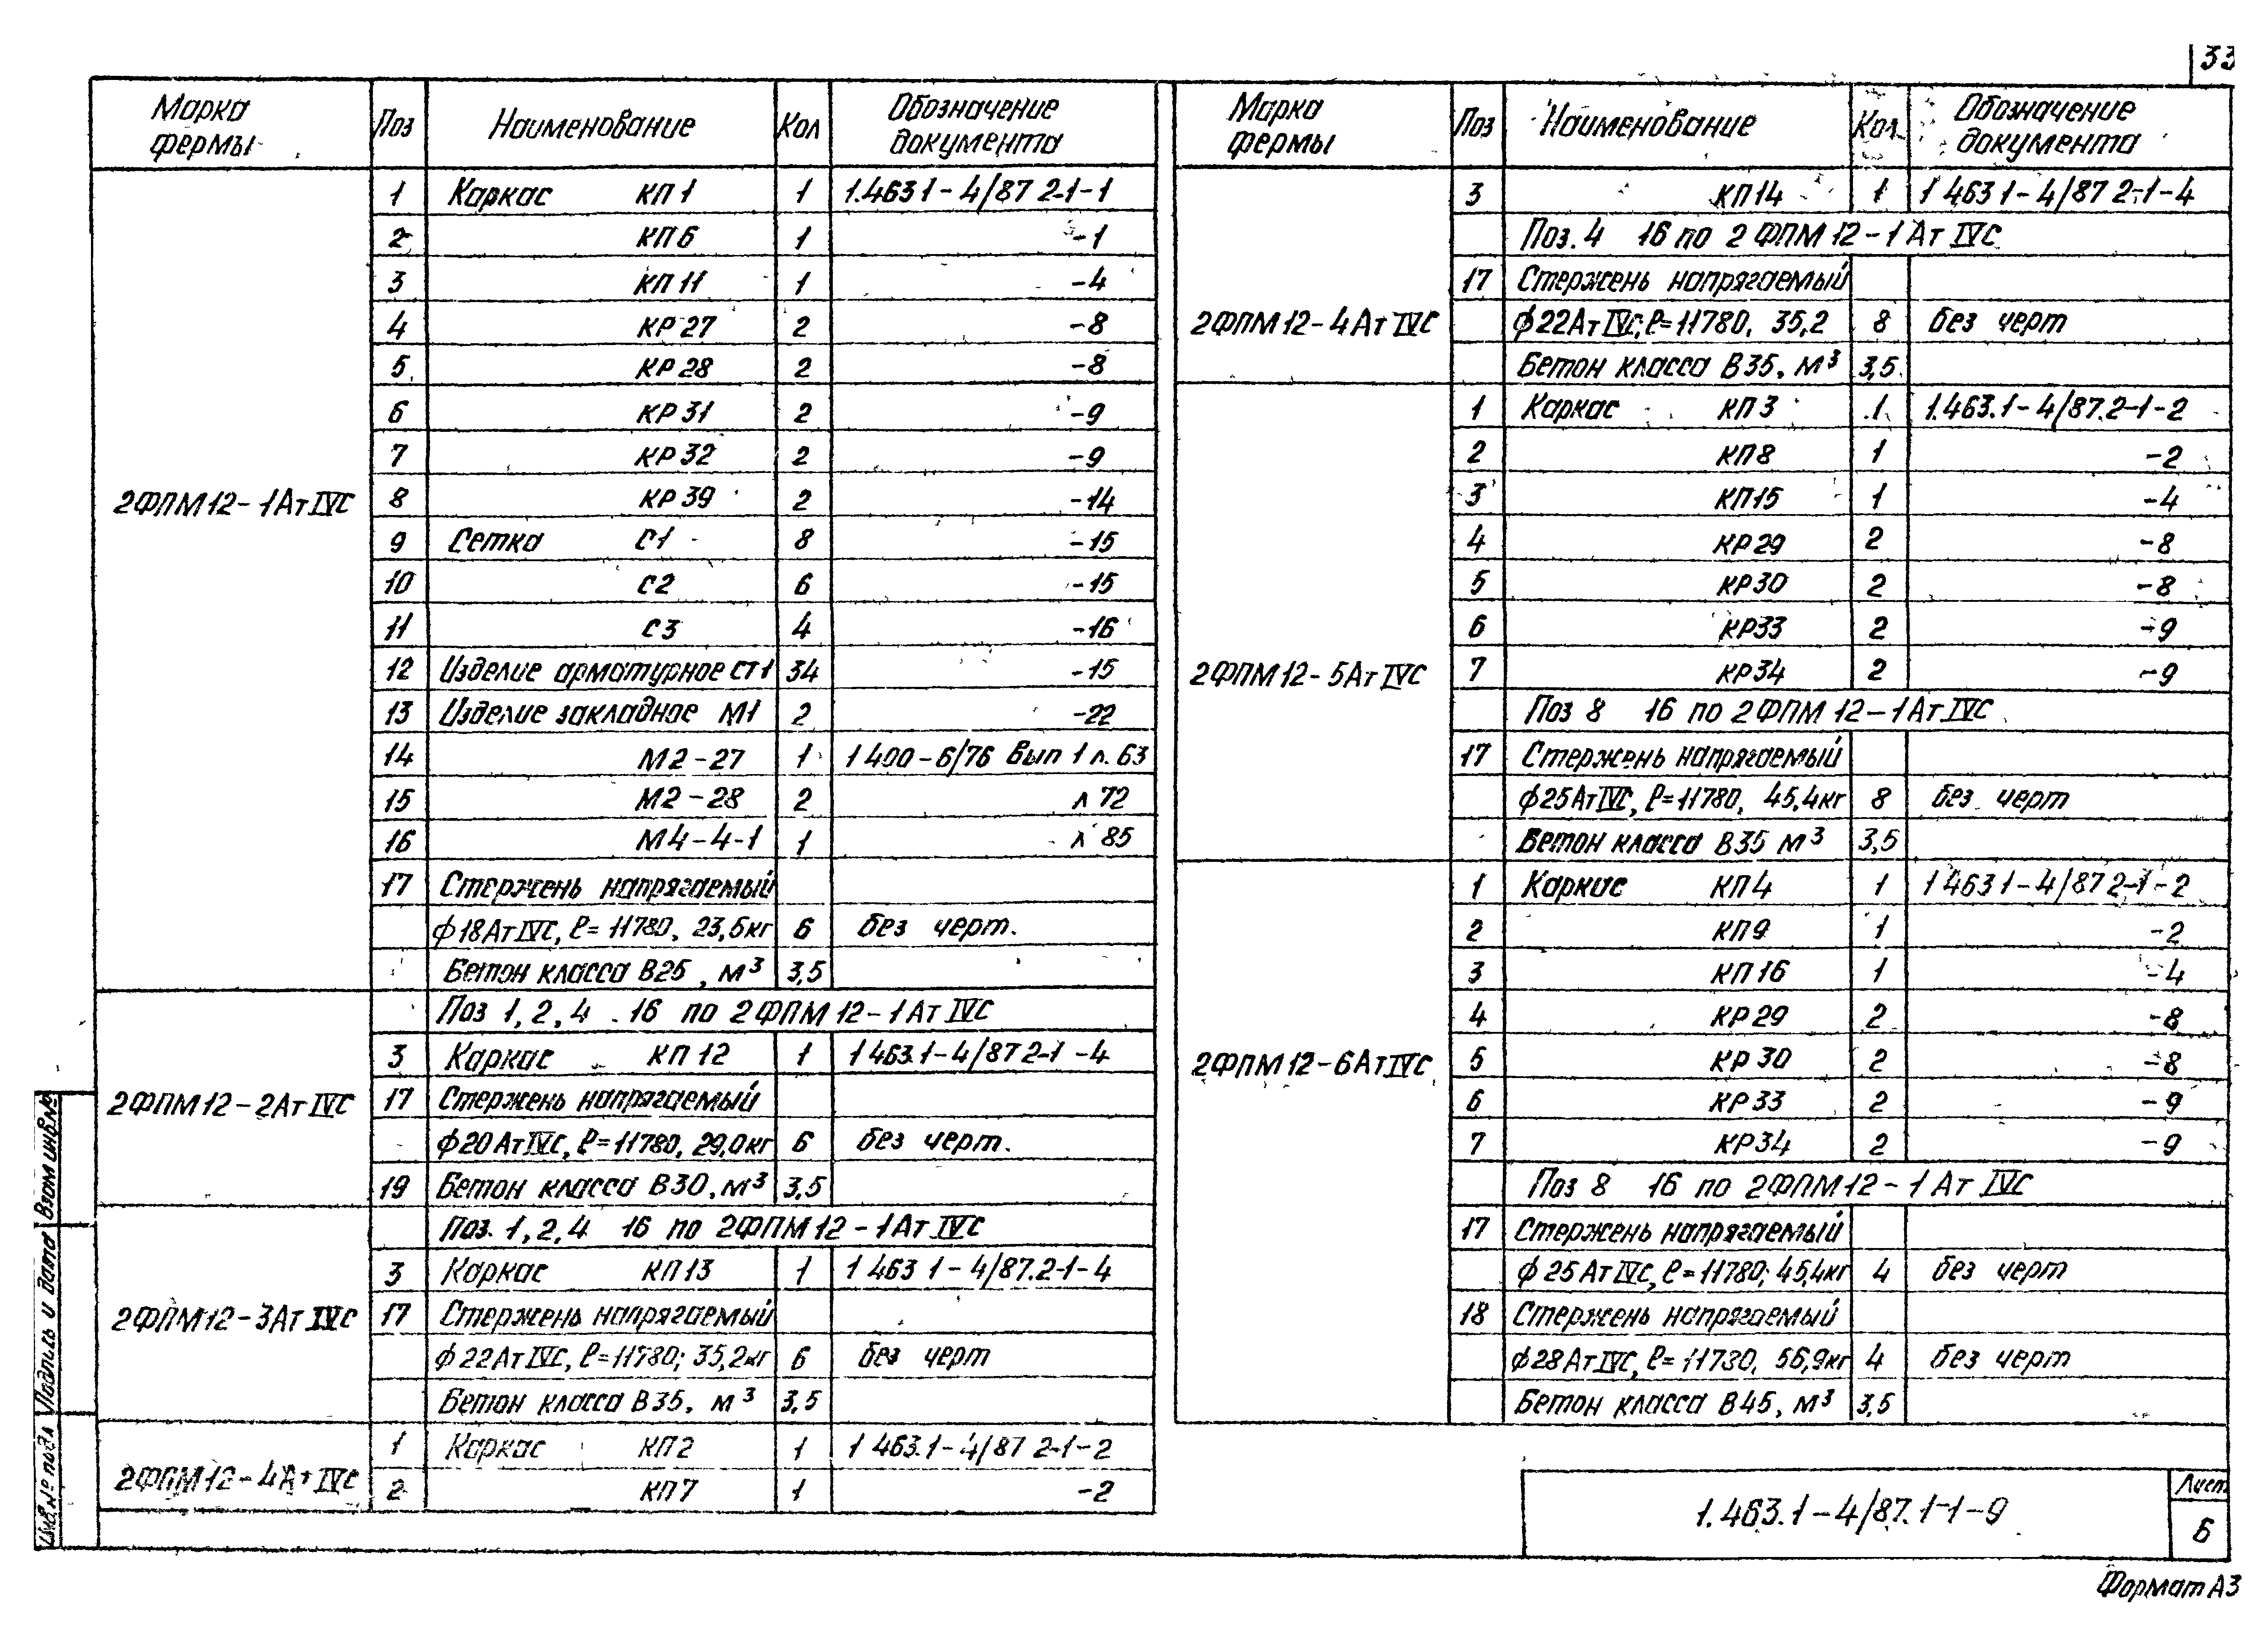 33
Марка фермы Поз Наименование Кол Обозначение документа
2ФПМ12-1АтIVС
1 Каркас КП1 1 1.463 1-4/87 2-1-1
2 КП6 1 -1
3 КП11 1 -4
4 КР27 2 -8
5 КР28 2 -8
6 КР31 2 -9
7 КР32 2 -9
8 КР39 2 -14
9 Сетка С1 8 -15
10 С2 6 -15
11 С3 4 -16
12 Изделие арматурное СТ1 34 -15
13 Изделие закладное М1 2 -22
14 М2-27 1 1 400-6/76 Вып 1 л. 63
15 М2-28 2 л 72
16 М4-4-1 1 л 85
17 Стержень напрягаемый
ф18АтIVС, ℓ=11780, 23,6кг 6 без черт.
Бетон класса В25, м³ 3,5
2ФПМ12-2АтIVС
Поз 1, 2, 4 16 по 2ФПМ12-1АтIVС
3 Каркас КП12 1 1 463.1-4/87 2-1-4
17 Стержень напрягаемый
ф20АтIVС, ℓ=11780, 29,0кг 6 без черт.
19 Бетон класса В30, м³ 3,5
2ФПМ12-3АтIVС
Поз. 1, 2, 4 16 по 2ФПМ12-1АтIVС
3 Каркас КП13 1 1 463 1-4/87.2-1-4
17 Стержень напрягаемый
ф22АтIVС, ℓ=11780; 35,2кг 6 без черт
Бетон класса В35, м³ 3,5
2ФПМ12-4АтIVС
1 Каркас КП2 1 1 463.1-4/87 2-1-2
2 КП7 1 -2
Марка фермы Поз Наименование Кол. Обозначение документа
2ФПМ12-4АтIVС
3 КП14 1 1 463 1-4/87 2-1-4
Поз. 4 16 по 2ФПМ12-1АтIVС
17 Стержень напрягаемый
ф22АтIVС; ℓ=11780, 35,2 8 без черт
Бетон класса В35, м³ 3,5
2ФПМ12-5АтIVС
1 Каркас КП3 1 1.463.1-4/87.2-1-2
2 КП8 1 -2
3 КП15 1 -4
4 КР29 2 -8
5 КР30 2 -8
6 КР33 2 -9
7 КР34 2 -9
Поз 8 16 по 2ФПМ12-1АтIVС
17 Стержень напрягаемый
ф25АтIVС, ℓ=11780, 45,4кг 8 без черт
Бетон класса В35 м³ 3,5
2ФПМ12-6АтIVС
1 Каркас КП4 1 1 463 1-4/87 2-1-2
2 КП9 1 -2
3 КП16 1 -4
4 КР29 2 -8
5 КР30 2 -8
6 КР33 2 -9
7 КР34 2 -9
Поз 8 16 по 2ФПМ12-1АтIVС
17 Стержень напрягаемый
ф25АтIVС, ℓ=11780; 45,4кг 4 без черт
18 Стержень напрягаемый
ф28АтIVС, ℓ=11780, 56,9кг 4 без черт
Бетон класса В45, м³ 3,5
1.463.1-4/87.1-1-9
Лист
6
Формат А3
Инв.№ подл Подпись и дата Взам инв.№